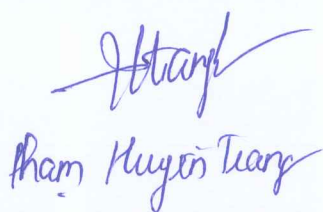 Htrang
Phạm Huyền Trang